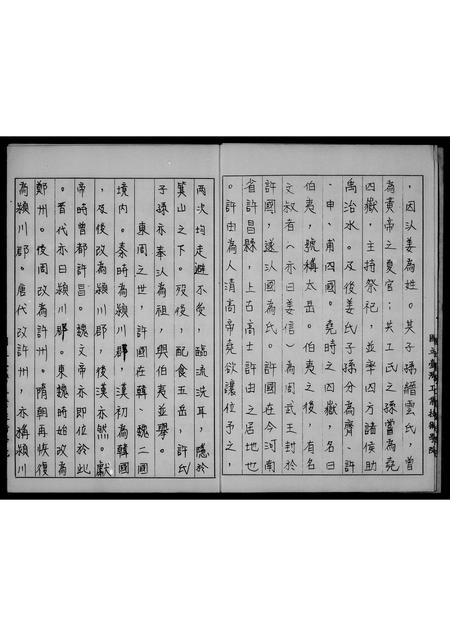 ，因以姜為姓。其子孫縉雲氏，曾
為黃帝之夏官；共工氏之孫嘗為堯
四嶽，主持祭祀，並率四方諸侯助
禹治水。及後姜氏子孫分為齊、許
、申、甫四國。堯時之四嶽，名曰
伯夷，號稱太岳。伯夷之後，有名
文叔者（亦曰姜信）為周武王封於
許國，遂以國為氏。許國在今河南
省許昌縣，上古高士許由之居地也
。許由為人清高帝堯欲讓位予之，
兩次均走避不受，臨流洗耳，隱於
箕山之下。歿後，配食五岳，許氏
子孫亦奉以為祖，與伯夷並舉。
東周之世，許國在韓、魏二國
境內。秦時為潁川郡，漢初為韓國
，及後改為潁川郡，後漢亦然。獻
帝時曾都許昌。魏文帝亦即位於此
。晉代亦曰潁川郡。東魏時始改為
鄭州。後周改為許州。隋朝再恢復
為潁川郡。唐代改許州，亦稱潁川
國立臺灣工業技術學院